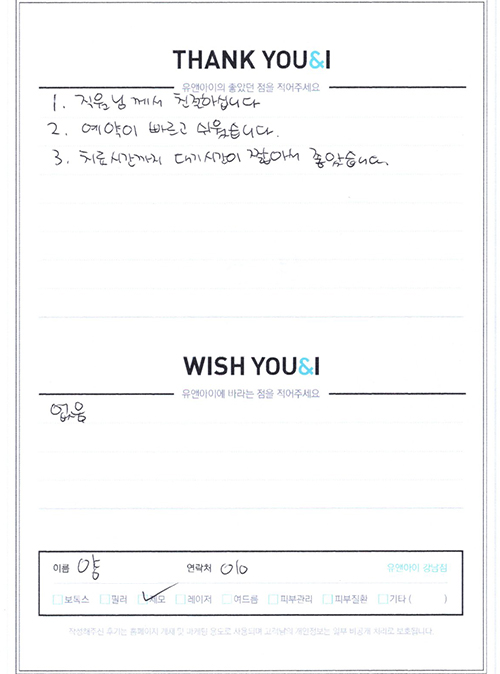 THANK YOU&I
유앤아이의 좋았던 점을 적어주세요
1. 직원님께서 친절하십니다
2. 예약이 빠르고 쉬웠습니다.
3. 치료시간까지 대기시간이 짧아서 좋았습니다.
WISH YOU&I
유앤아이에 바라는 점을 적어주세요
없음
이름 양 연락처 010 유앤아이 강남점
보톡스 필러 제모 레이저 여드름 피부관리 피부질환 기타 ( )
작성해주신 후기는 홈페이지 게재 및 마케팅 용도로 사용되며 고객님의 개인정보는 일부 비공개 처리로 보호됩니다.